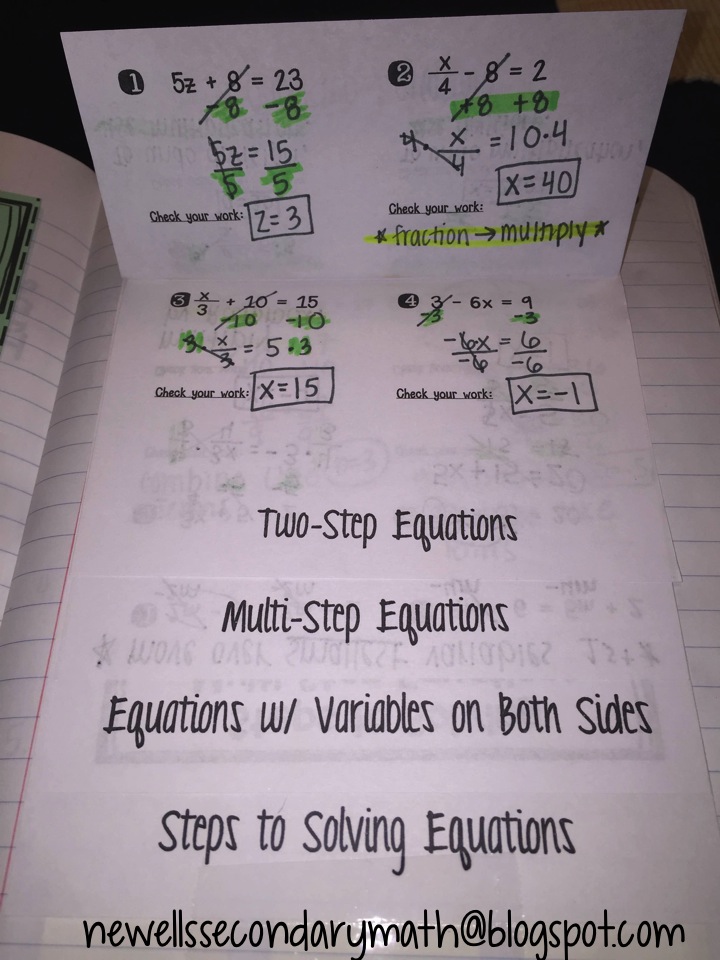 1 5z + 8 = 23
-8 -8
5z = 15
5 5
Check your work: z = 3
2 x/4 - 8 = 2
+8 +8
4 · x/4 = 10·4
x = 40
Check your work:
* fraction → multiply *
3 x/3 + 10 = 15
-10 -10
3 · x/3 = 5 · 3
Check your work: x = 15
4 3 - 6x = 9
-3 -3
-6x = 6
-6 -6
Check your work: x = -1
Two-Step Equations
Multi-Step Equations
Equations w/ Variables on Both Sides
Steps to Solving Equations
newellssecondarymath@blogspot.com